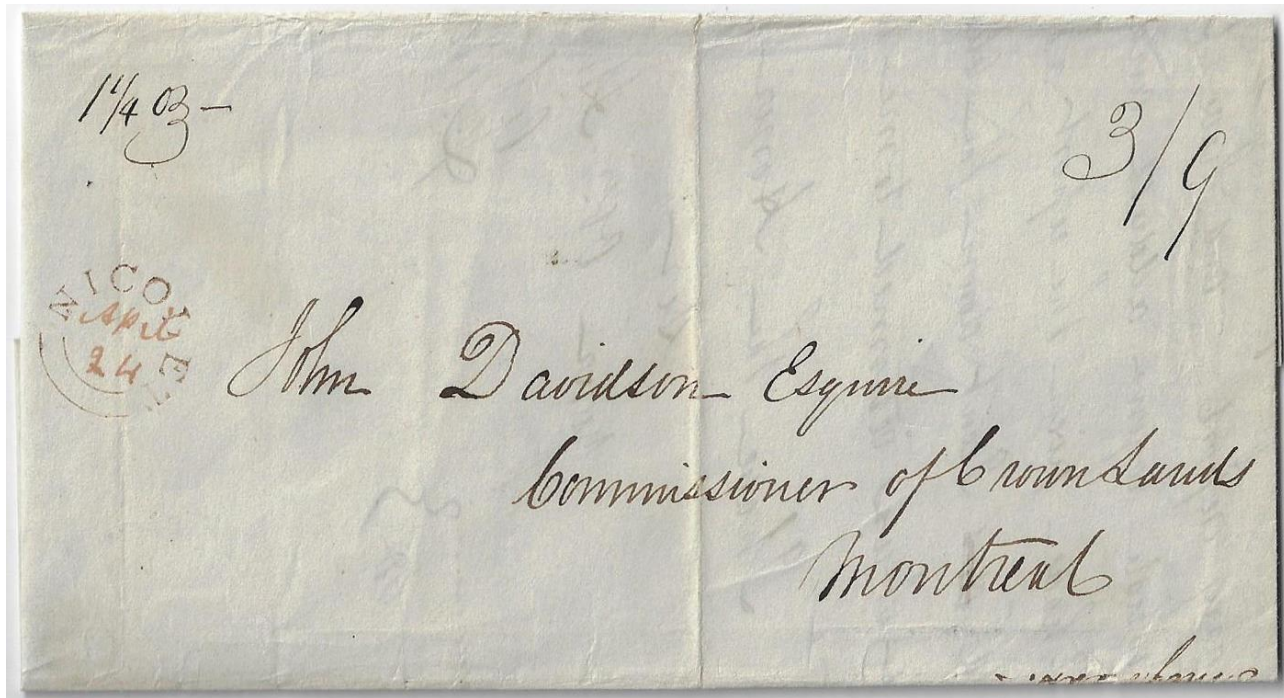 1 1/4 oz –
3/9
NICOLET
Apil
24
John Davidson Esquire
Commissioner of Crown Lands
Montreal